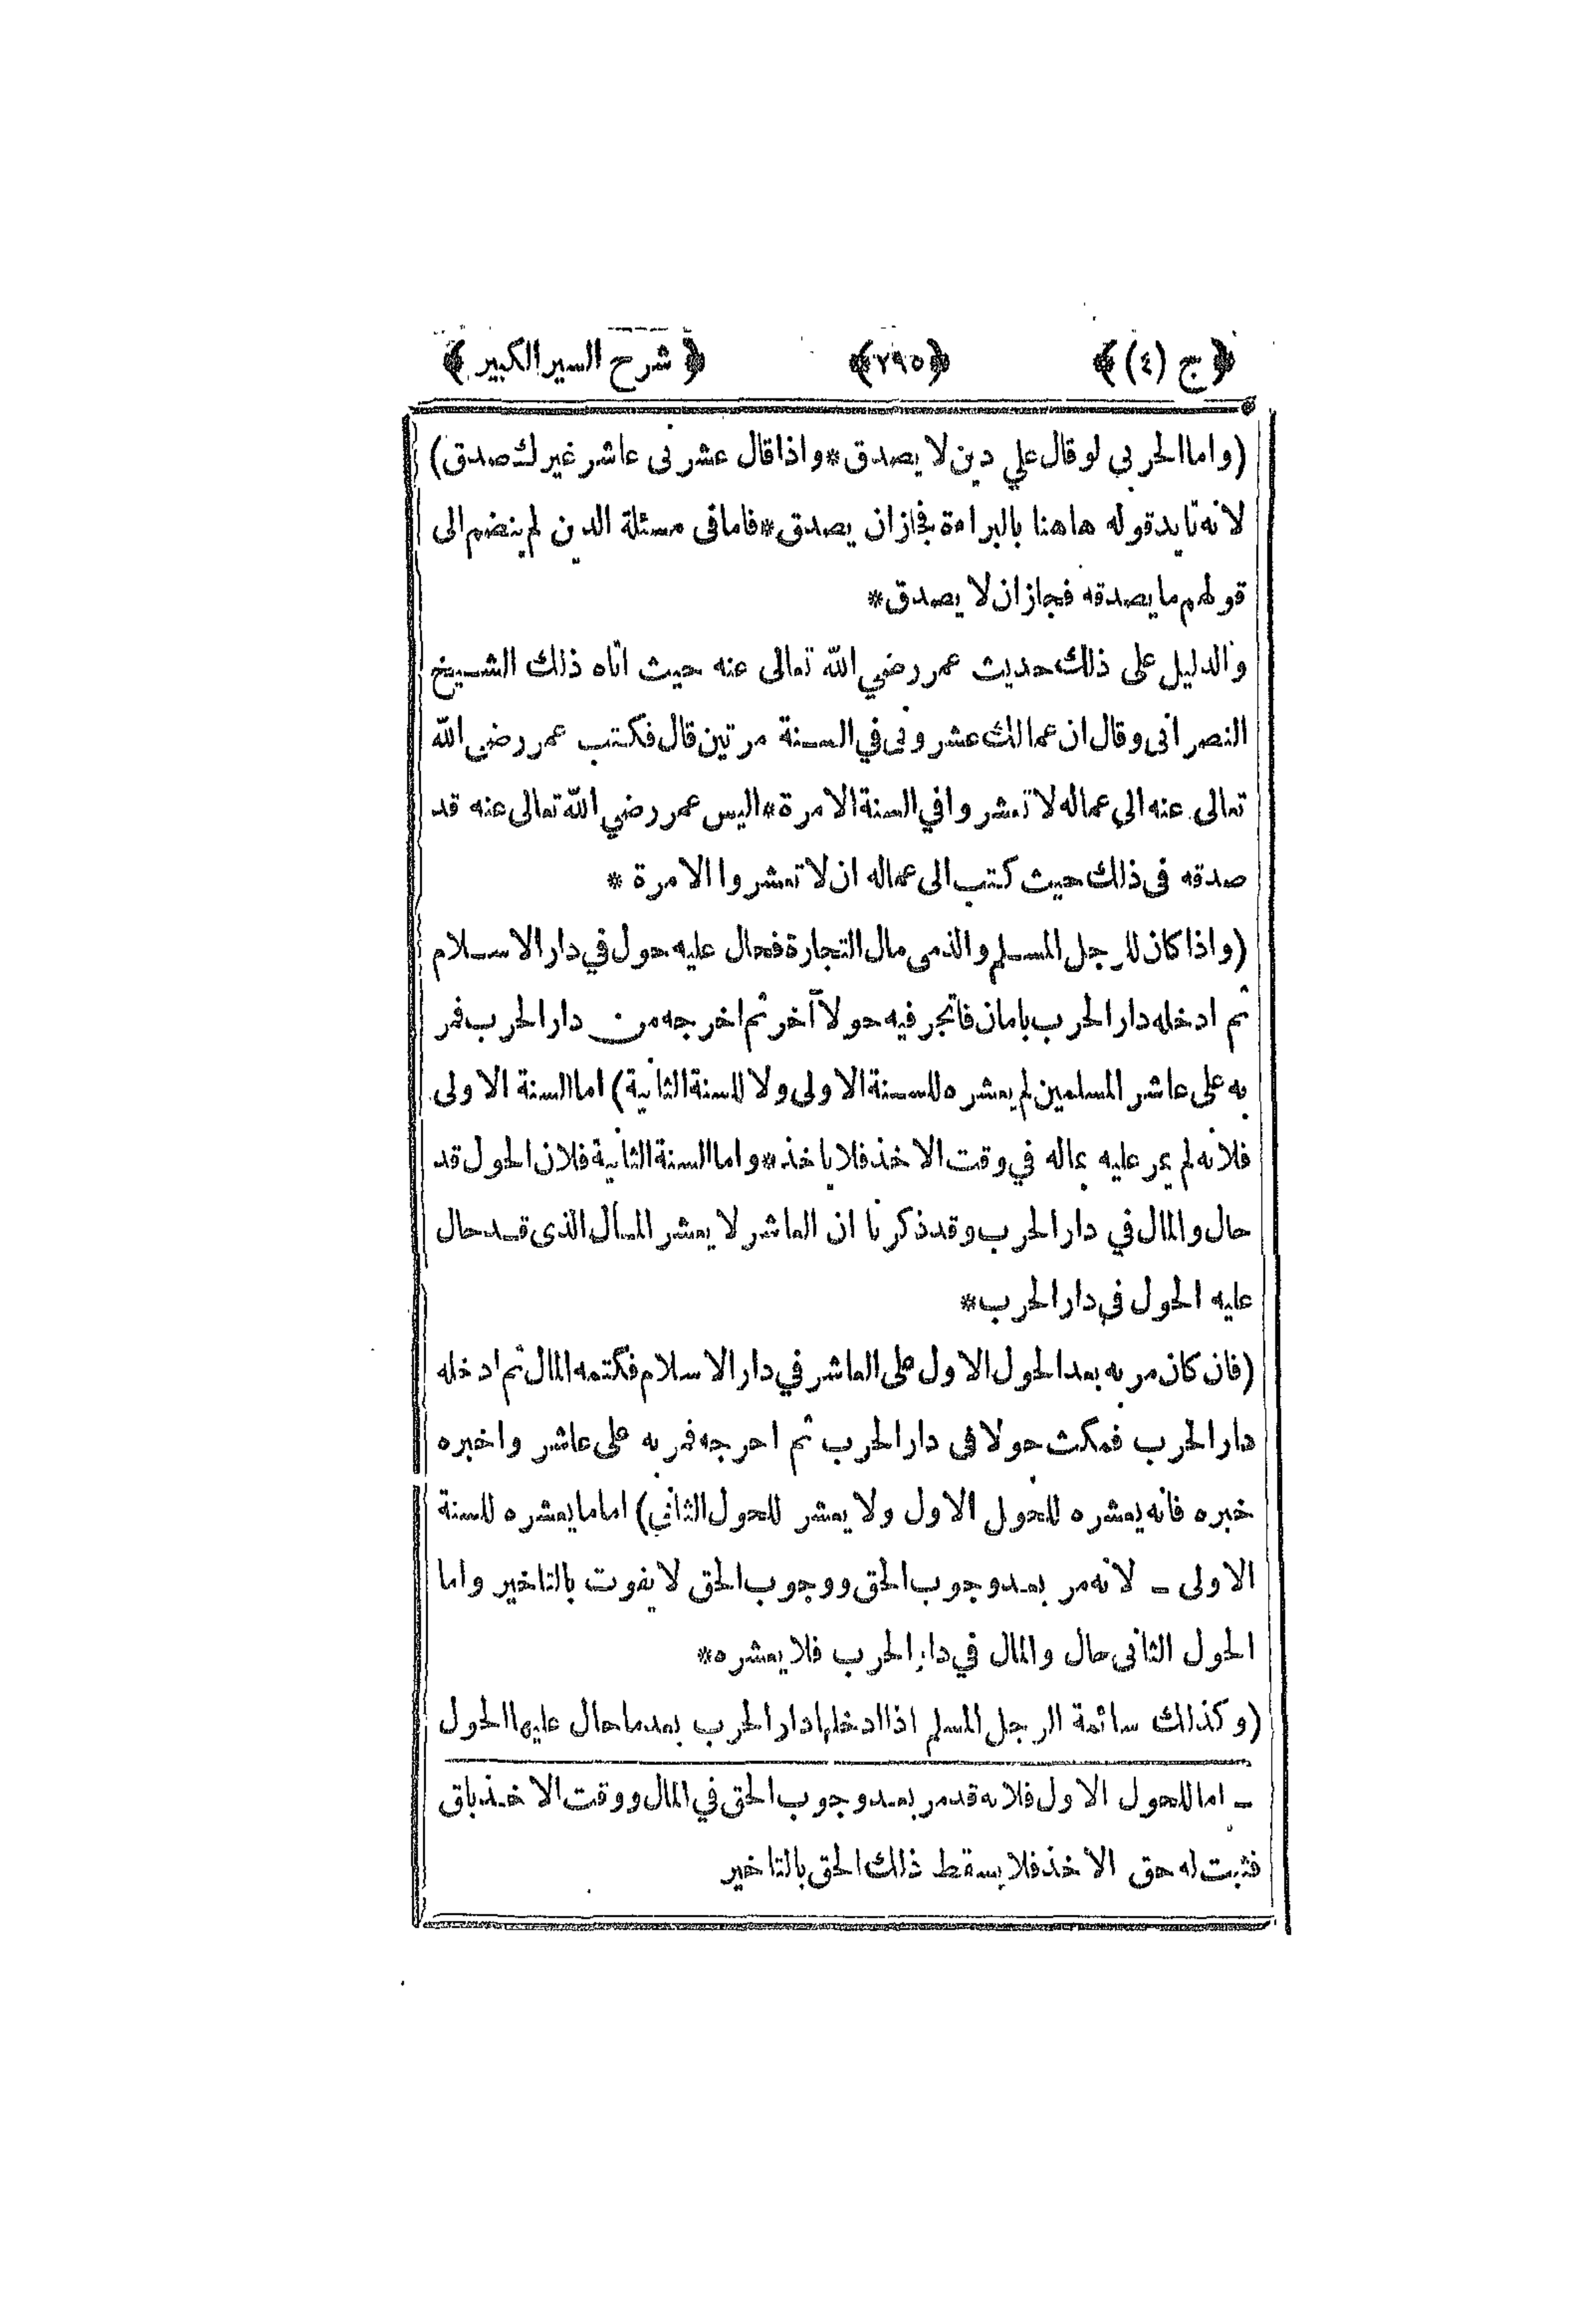 ﴿ ج (٤) ﴾ ﴿٢٩٥﴾ ﴿ شرح السير الكبير ﴾
(واما الحربي لو قال علي دين لا يصدق * واذا قال عشرنى عاشر غيرك صدق)
لانه تايد قوله هاهنا بالبراءة فجاز ان يصدق * فاما فى مسئلة الدين لم ينضم الى
قولهم ما يصدقه فجاز ان لا يصدق *
والدليل على ذلك حديث عمر رضي الله تعالى عنه حيث اتاه ذلك الشيخ
النصرانى وقال ان عمالك عشرونى في السنة مرتين قال فكتب عمر رضي الله
تعالى عنه الى عماله لا تعشروا في السنة الا مرة * اليس عمر رضي الله تعالى عنه قد
صدقه فى ذلك حيث كتب الى عماله ان لا تعشروا الا مرة *
(واذا كان للرجل المسلم والذمى مال التجارة فحال عليه حول في دار الاسلام
ثم ادخله دار الحرب بامان فاتجر فيه حولا آخر ثم اخرجه من دار الحرب فمر
به على عاشر المسلمين لم يعشره للسنة الاولى ولا للسنة الثانية) اما السنة الاولى
فلانه لم يمر عليه بماله في وقت الاخذ فلا ياخذ * واما السنة الثانية فلان الحول قد
حال والمال في دار الحرب وقد ذكرنا ان العاشر لا يعشر المال الذى قد حال
عليه الحول في دار الحرب *
(فان كان مر به بعد الحول الاول على العاشر في دار الاسلام فكتمه المال ثم ادخله
دار الحرب فمكث حولا فى دار الحرب ثم اخرجه فمر به على عاشر واخبره
خبره فانه يعشره للحول الاول ولا يعشر للحول الثاني) اما ما يعشره للسنة
الاولى ــ لانه مر بعد وجوب الحق ووجوب الحق لا يفوت بالتاخير واما
الحول الثانى حال والمال في دار الحرب فلا يعشره *
(وكذلك سائمة الرجل المسلم اذا ادخلها دار الحرب بعد ما حال عليها الحول
ــ اما للحول الاول فلانه قد مر بعد وجوب الحق في المال ووقت الاخذ باق
فثبت له حق الاخذ فلا يسقط ذلك الحق بالتاخير